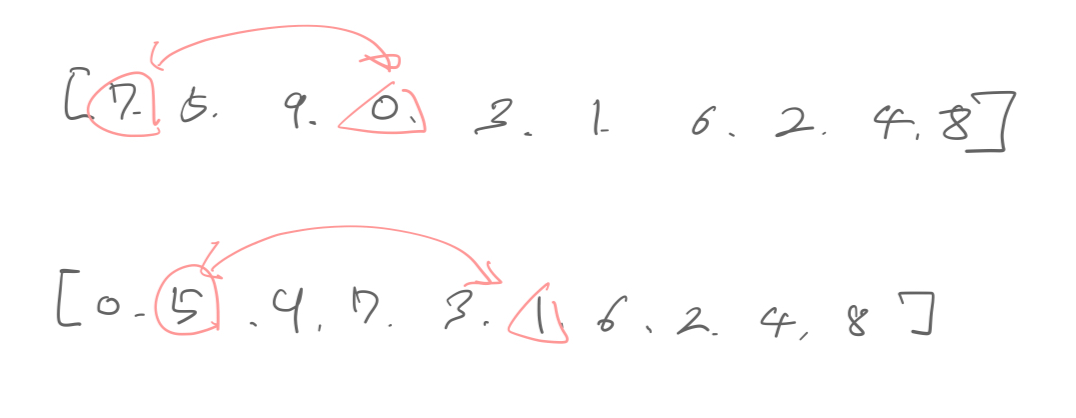 [7. 5. 9. 0. 3. 1. 6. 2. 4. 8]
[0. 5. 9. 7. 3. 1. 6. 2. 4. 8]